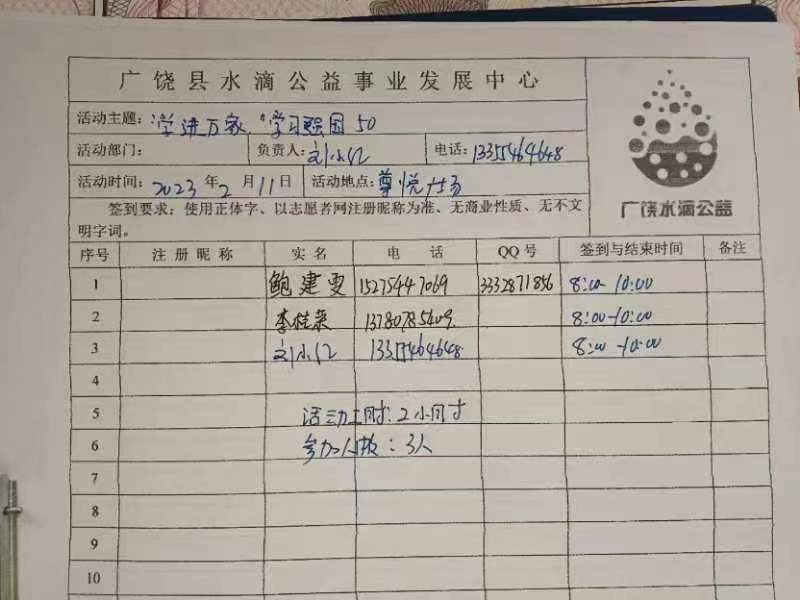 广饶县水滴公益事业发展中心
活动主题: 学进万家,“学习强国50
活动部门: 负责人:刘小红 电话:13355464648
活动时间:2023年2月11日 活动地点:尊悦广场
广饶水滴公益
签到要求: 使用正体字、以志愿者网注册昵称为准、无商业性质、无不文
明字词。
序号 注册昵称 实名 电话 QQ号 签到与结束时间 备注
1 鲍建雯 15275447069 3332871856 8:00-10:00
2 李桂荣 13780785409 8:00-10:00
3 刘小红 13355464648 8:00-10:00
4
5 活动时:2小时
6 参加人数:3人
7
8
9
10